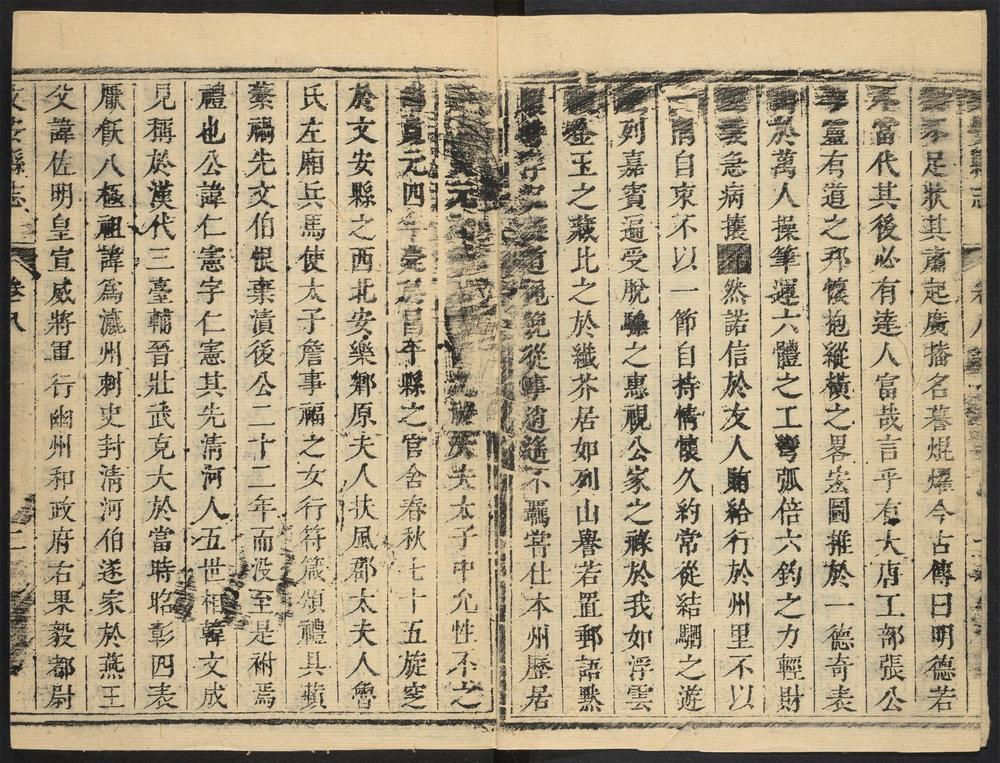 縣志 卷八
不足狀其肅起廣播名暮焜燿今古傳曰明德若
不當代其後必有達人富哉言乎有大唐工部張公
靈有道之邦懷抱縱橫之畧宏圖推於一德奇表
於萬人操筆運六體之工彎弧倍六鈞之力輕財
義急病攘然諾信於友人賄給行於州里不以
自束不以一節自持情懷久約常從結駟之遊
列嘉賓遍受脫驂之惠視公家之祿於我如浮雲
金玉之藏比之於纖芥居如列山譽若置郵語默
道黽俛從事逍遙不羈嘗仕本州歷居
太子中允性不之
貞元四年縣之官舍春秋七十五旋窆
於文安縣之西北安樂鄉原夫人扶風郡太夫人魯
氏左廂兵馬使太子詹事福之女行符箴頌禮具蘋
蘩禍先文伯恨棄潰後公二十二年而沒至是祔焉
禮也公諱仁憲字仁憲其先清河人五世相韓文成
見稱於漢代三臺輔晉壯武克大於當時昭彰四表
厭飫八極祖諱為瀛州刺史封清河伯遂家於燕王
父諱佐明皇宣威將軍行幽州和政府右果毅都尉
文安縣志 卷八 二